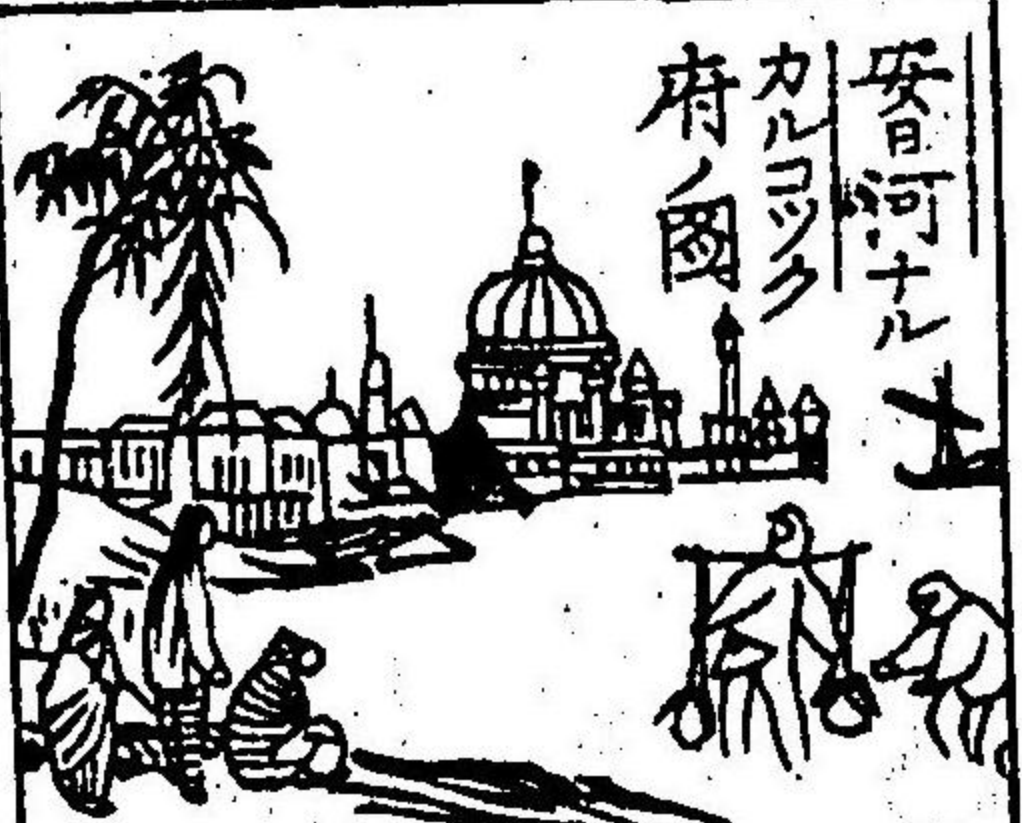 安日河ナル
カルコック
府ノ圖